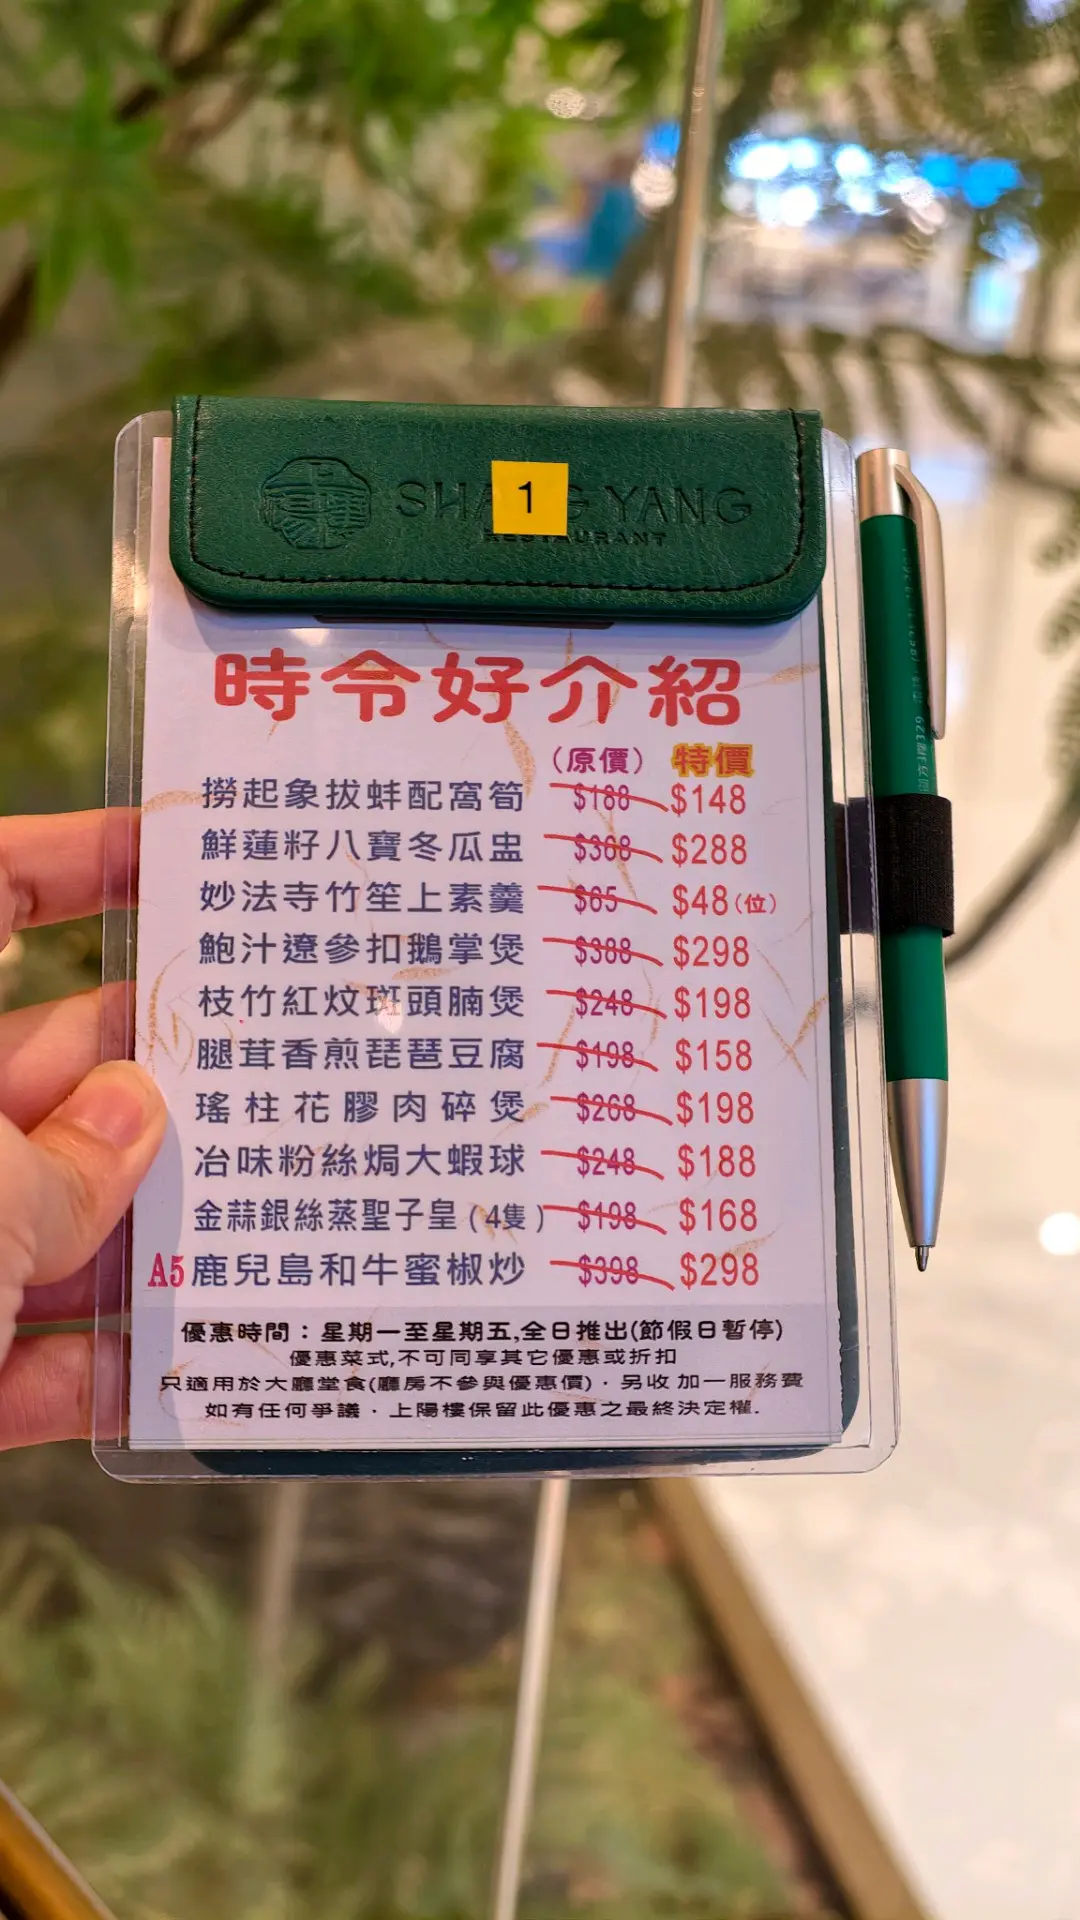 上陽樓 SHANG YANG
RESTAURANT
1
時令好介紹
(原價) 特價
撈起象拔蚌配窩筍 $188 $148
鮮蓮籽八寶冬瓜盅 $388 $288
妙法寺竹笙上素羹 $65 $48(位)
鮑汁遼參扣鵝掌煲 $388 $298
枝竹紅炆斑頭腩煲 $248 $198
腿茸香煎琵琶豆腐 $198 $158
瑤柱花膠肉碎煲 $268 $198
冶味粉絲焗大蝦球 $248 $188
金蒜銀絲蒸聖子皇(4隻) $198 $168
A5鹿兒島和牛蜜椒炒 $398 $298
優惠時間：星期一至星期五,全日推出(節假日暫停)
優惠菜式,不可同享其它優惠或折扣
只適用於大廳堂食(廳房不參與優惠價)．另收加一服務費
如有任何爭議．上陽樓保留此優惠之最終決定權.